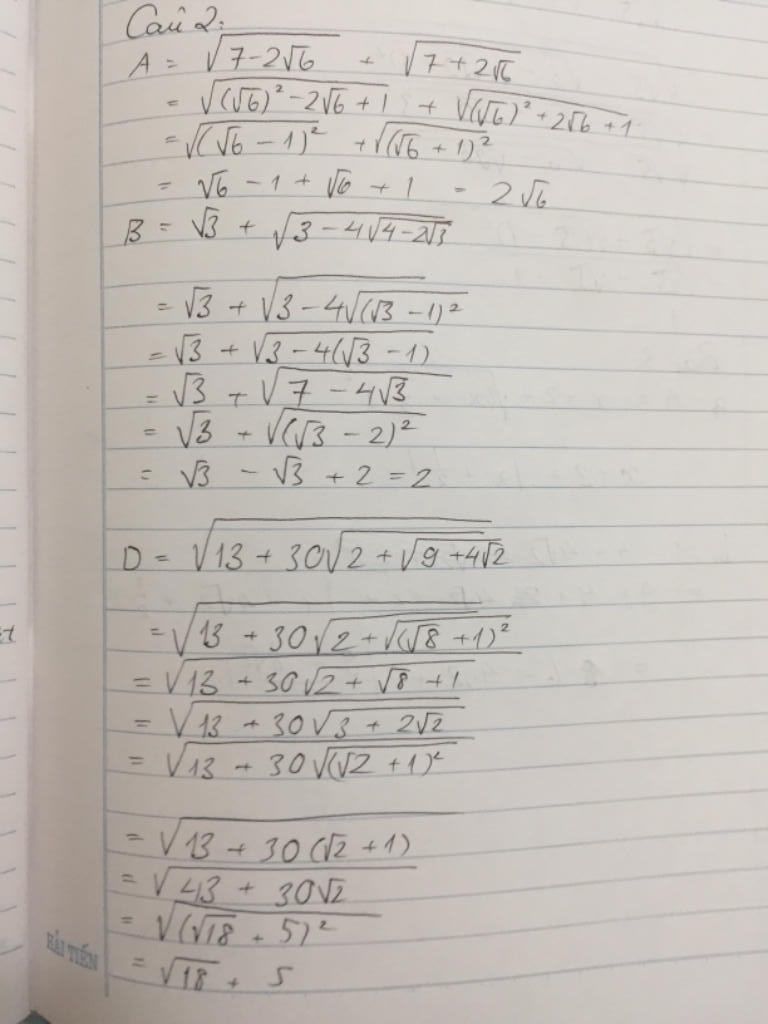 Câu 2:
A = √(7-2√6) + √(7+2√6)
= √((√6)² - 2√6 + 1) + √((√6)² + 2√6 + 1)
= √((√6 - 1)²) + √((√6 + 1)²)
= √6 - 1 + √6 + 1 = 2√6
B = √3 + √(3 - 4√(4-2√3))
= √3 + √(3 - 4√((√3 - 1)²))
= √3 + √(3 - 4(√3 - 1))
= √3 + √(7 - 4√3)
= √3 + √((√3 - 2)²)
= √3 - √3 + 2 = 2
D = √(13 + 30√(2 + √(9 + 4√2)))
= √(13 + 30√(2 + √((√8 + 1)²)))
= √(13 + 30√(2 + √8 + 1))
= √(13 + 30√(3 + 2√2))
= √(13 + 30√((√2 + 1)²))
= √(13 + 30(√2 + 1))
= √(43 + 30√2)
= √((√18 + 5)²)
= √18 + 5
HẢI TIẾN